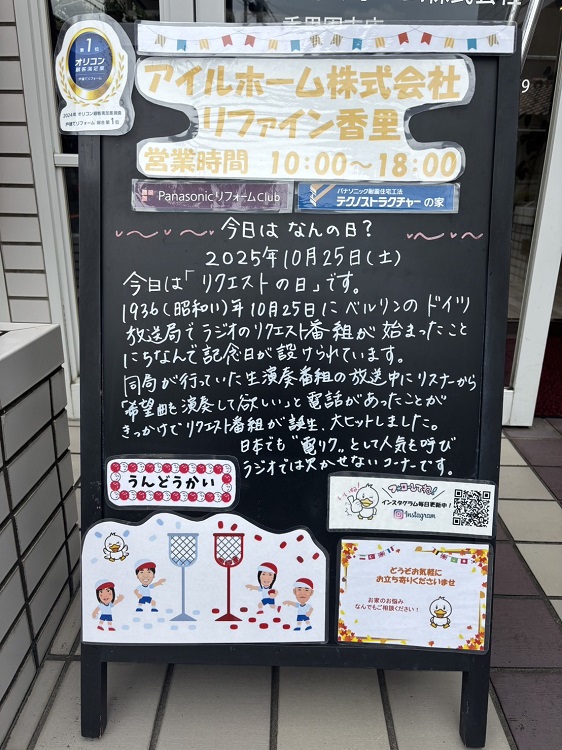 株式会社
香里園支店
第1位
オリコン
顧客満足度
戸建てリフォーム
2024年 オリコン顧客満足度調査
戸建てリフォーム 総合 第1位
アイルホーム株式会社
リファイン香里
営業時間 10:00〜18:00
PanasonicリフォームClub
パナソニック耐震住宅工法
テクノストラクチャーの家
今日は なんの日?
2025年10月25日(土)
今日は「リクエストの日」です。
1936(昭和11)年10月25日にベルリンのドイツ
放送局でラジオのリクエスト番組が始まったこと
にちなんで記念日が設けられています。
同局が行っていた生演奏番組の放送中にリスナーから
「希望曲も演奏して欲しい」と電話があったことが
きっかけでリクエスト番組が誕生、大ヒットしました。
日本でも"電リク"として人気を呼び
ラジオでは欠かせないコーナーです。
うんどうかい
いいね!
フォローしてね!
インスタグラム毎日更新中!
Instagram
どうぞお気軽に
お立ち寄りくださいませ
お家のお悩み
なんでもご相談ください!
9